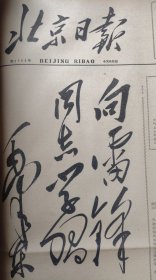 北京日報
BEIJING RIBAO
向雷锋
同志学习
毛泽东